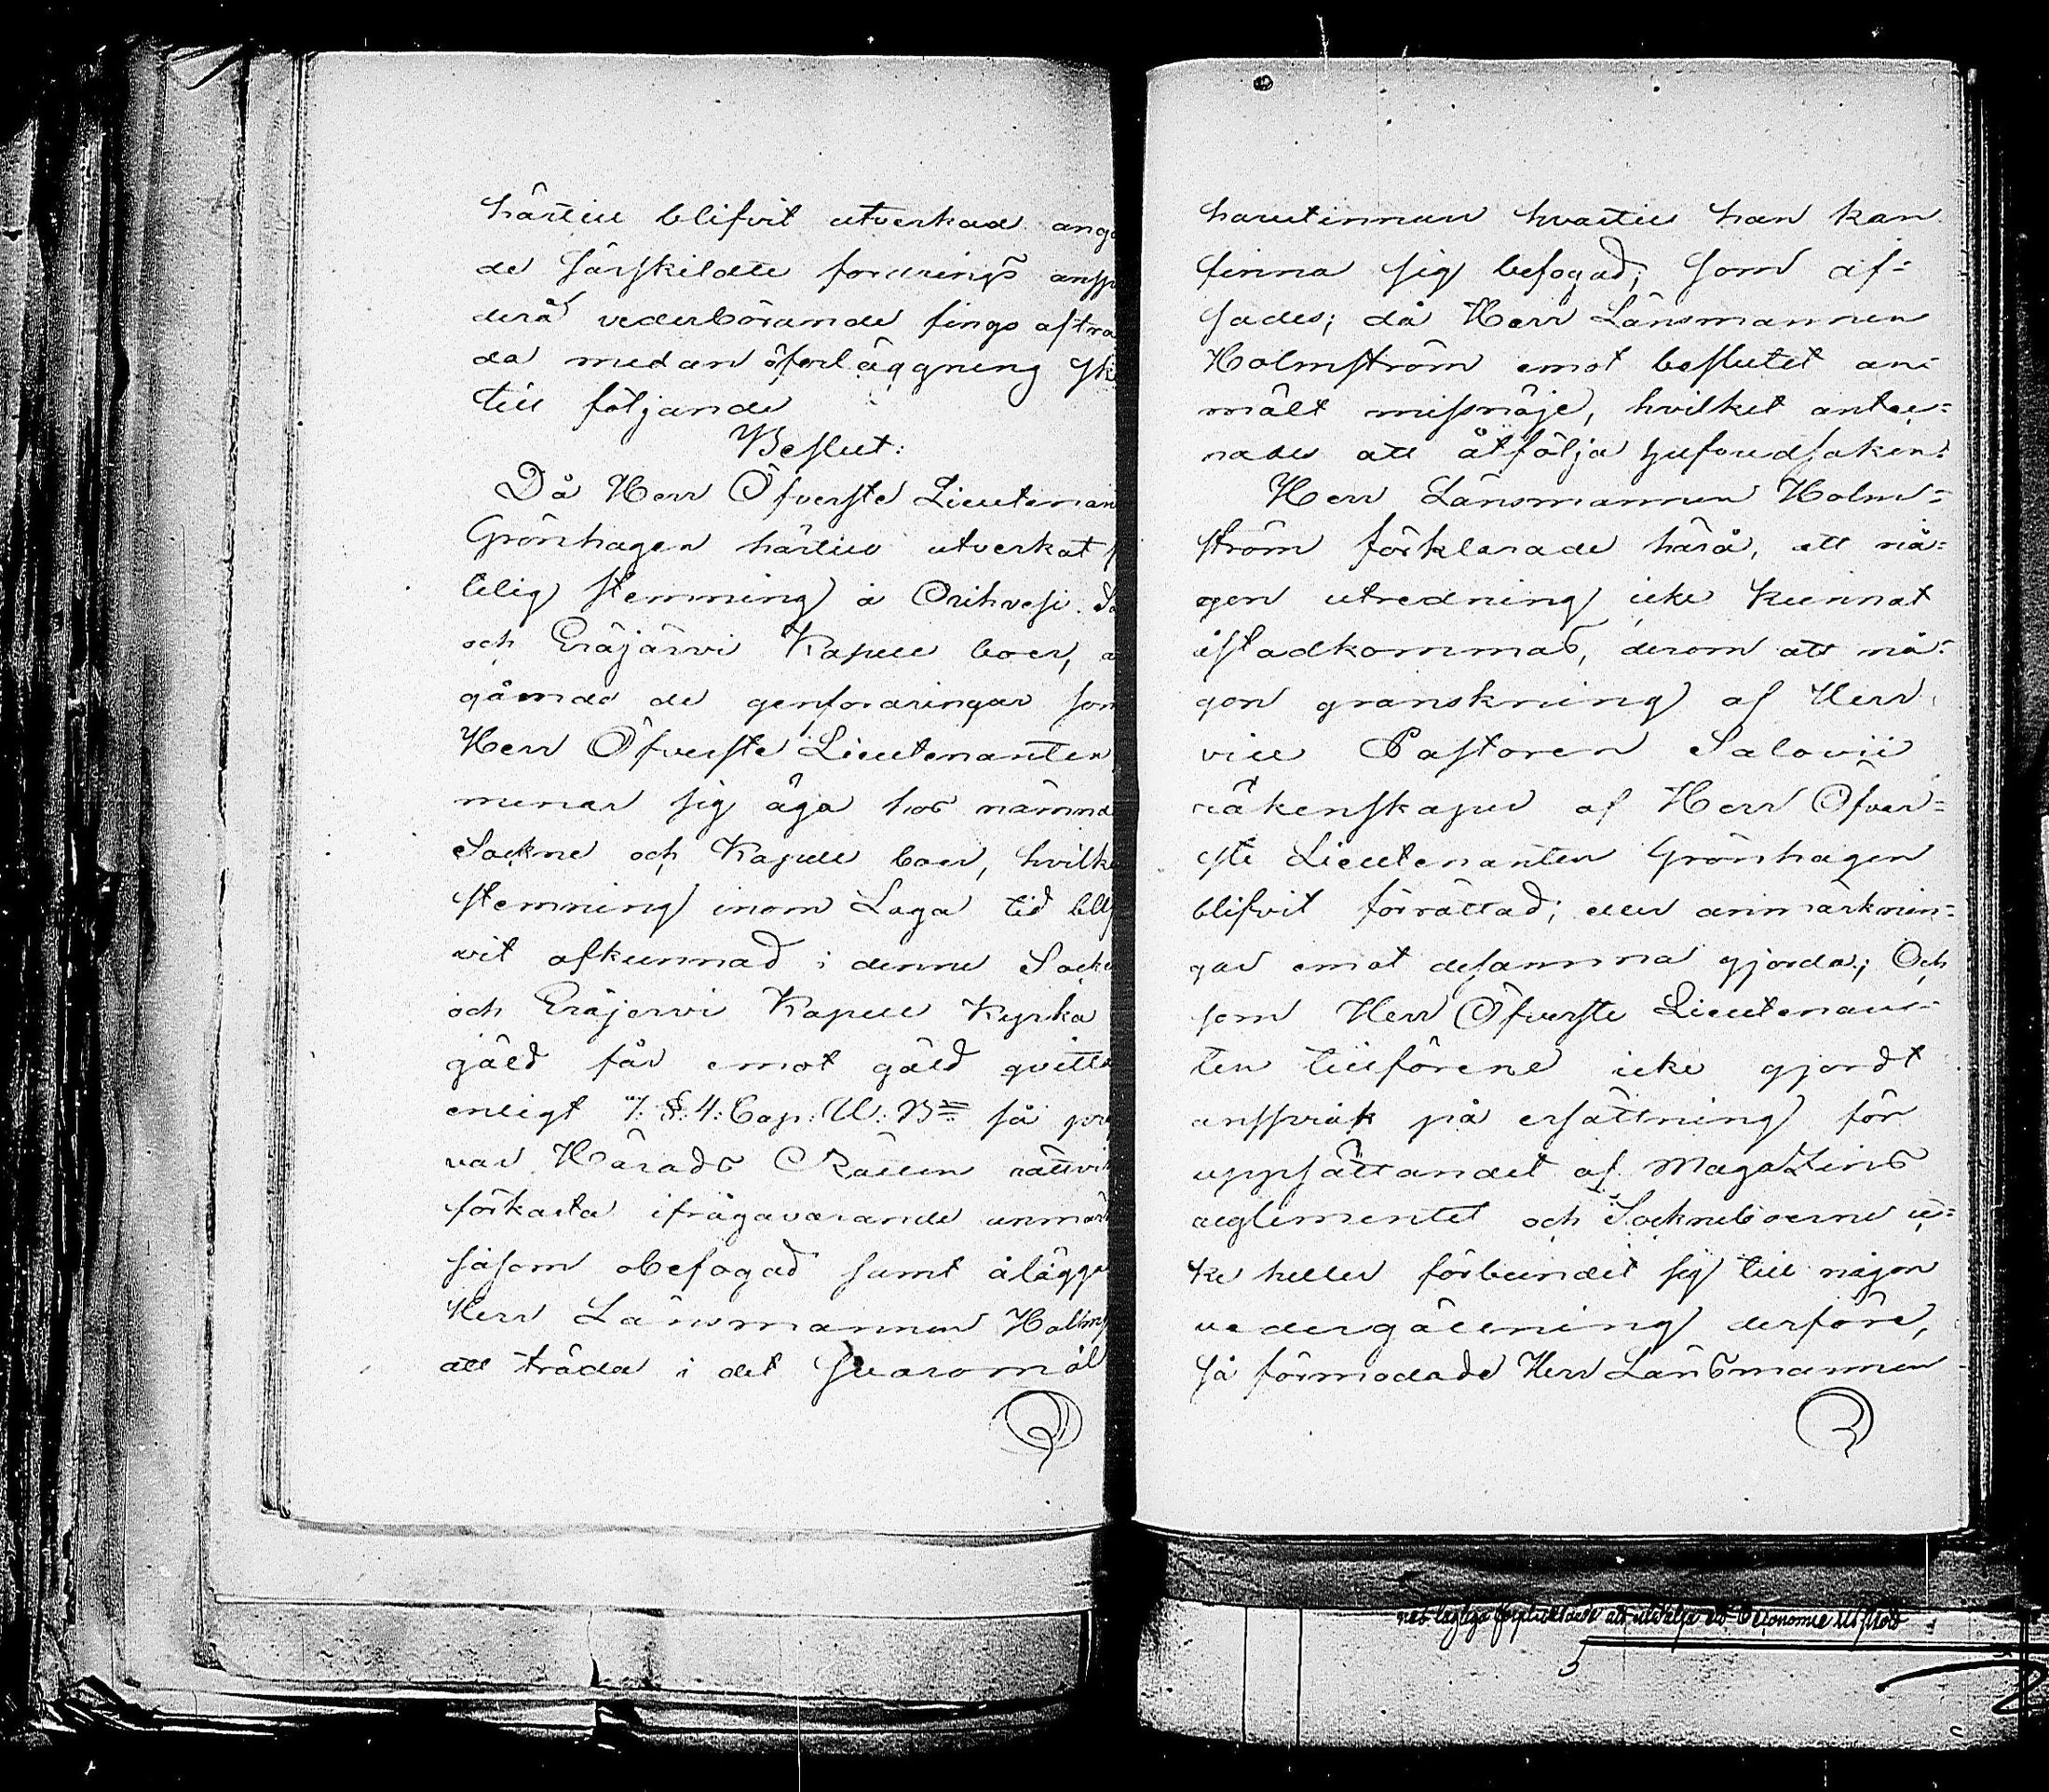 härtill blifvit utverkad anga
de särskildte fordrings anspr
derå vederbörande fingo aftra
da medan öfverläggning sk
till följande
Beslut:
Då Herr Öfverste Lieutenan
Grönhagen härtill utverkat
lelig stemning å Orihvesi So
och Eräjärvi Kapell boer, a
gående de genfordringar som
Herr Öfverste Lieutenanten
menar sig äga hos nämnde
Sockne och Kapell boer, hvilke
stemning inom Laga tid blif
vit afkunnad i denne Socke
och Eräjervi Kapell Kyrka
gäld får emot gäld qvitta
enligt 7. §. 4. Cap. U. B. så pröf
var Härads Rätten rättvis
förkasta ifrågavarande anmärk
såsom obefogad samt ålägga
Herr Länsmannen Holmst
att träda i det svaromål
harutinnan hvartill han kan
finna sig befogad; som af-
sades; då Herr Länsmannen
Holmström emot beslutet an-
mält missnöje, hvilket anteck-
nades att åtfölja hufvudsaken.
Herr Länsmannen Holm-
ström förklarade härå, att nå-
gon utredning icke kunnat
åstadkommas, derom att nå-
gon granskning af Herr
vice Pastoren Salovii
räkenskaper af Herr Öfver-
ste Lieutenanten Grönhagen
blifvit förrättad; eller anmärknin-
gar emot desamma gjorda; Och
som Herr Öfverste Lieutenan-
ten tillförene icke gjordt
anspråk på ersättning för
uppsättandet af Magazins
reglementet och Sockneboerne ic-
ke heller förbundit sig till någon
vedergällning derföre,
så förmodade Herr Länsmannen
att utvälja ett Oeconomie Utskott